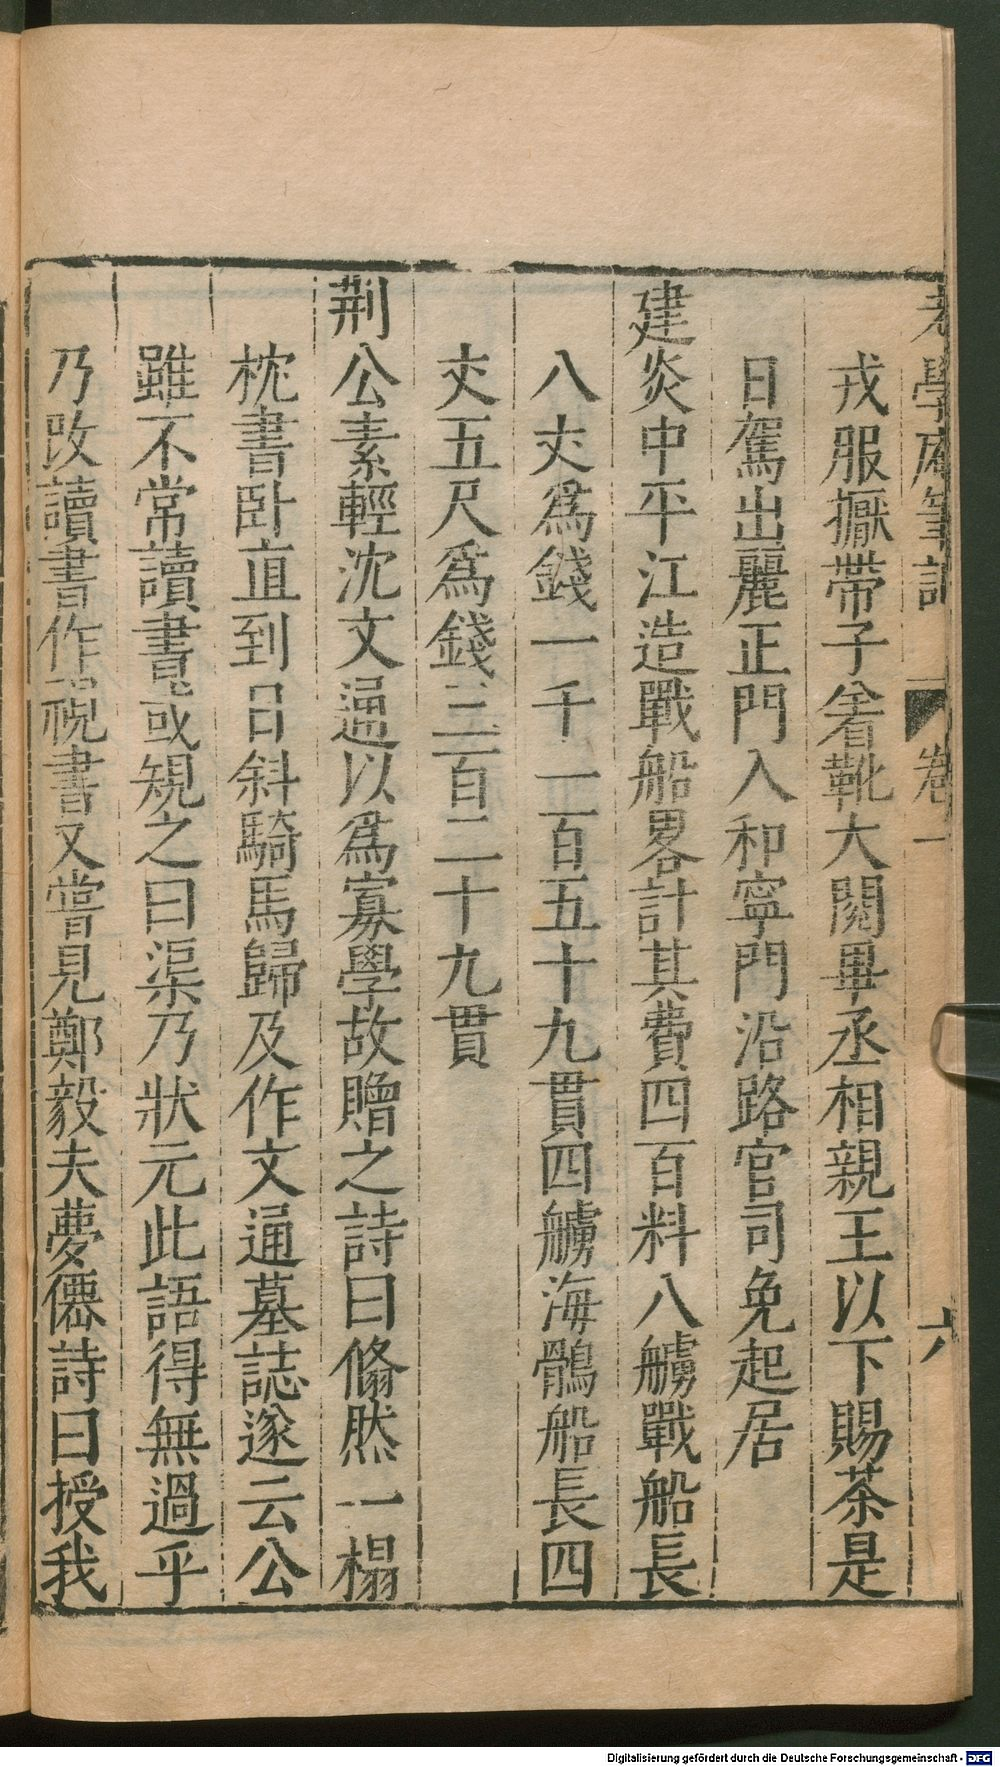 老學庵筆記 卷一 六
戎服擐帶子著靴大閱畢丞相親王以下賜茶是
日駕出麗正門入和寧門沿路官司免起居
建炎中平江造戰船畧計其費四百料八艣戰船長
八丈爲錢一千一百五十九貫四艣海鶻船長四
丈五尺爲錢三百二十九貫
荆公素輕沈文通以爲寡學故贈之詩曰翛然一榻
枕書卧直到日斜騎馬歸及作文通墓誌遂云公
雖不常讀書或規之曰渠乃狀元此語得無過乎
乃改讀書作視書又嘗見鄭毅夫夢僊詩曰授我
Digitalisierung gefördert durch die Deutsche Forschungsgemeinschaft - DFG